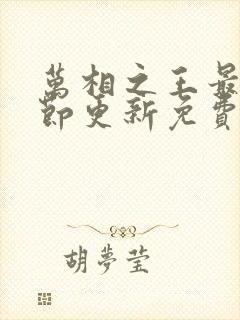 萬相之王最
節更新免費
胡夢瑩